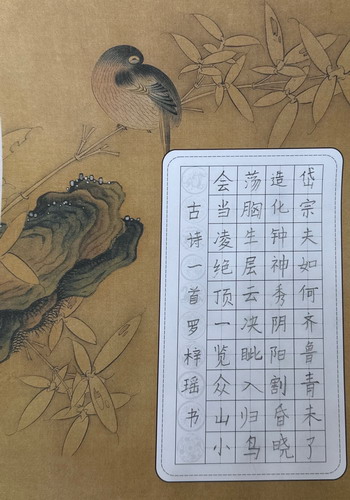 岱宗夫如何齐鲁青未了
造化钟神秀阴阳割昏晓
荡胸生层云决眦入归鸟
会当凌绝顶一览众山小
古诗一首罗梓瑶书